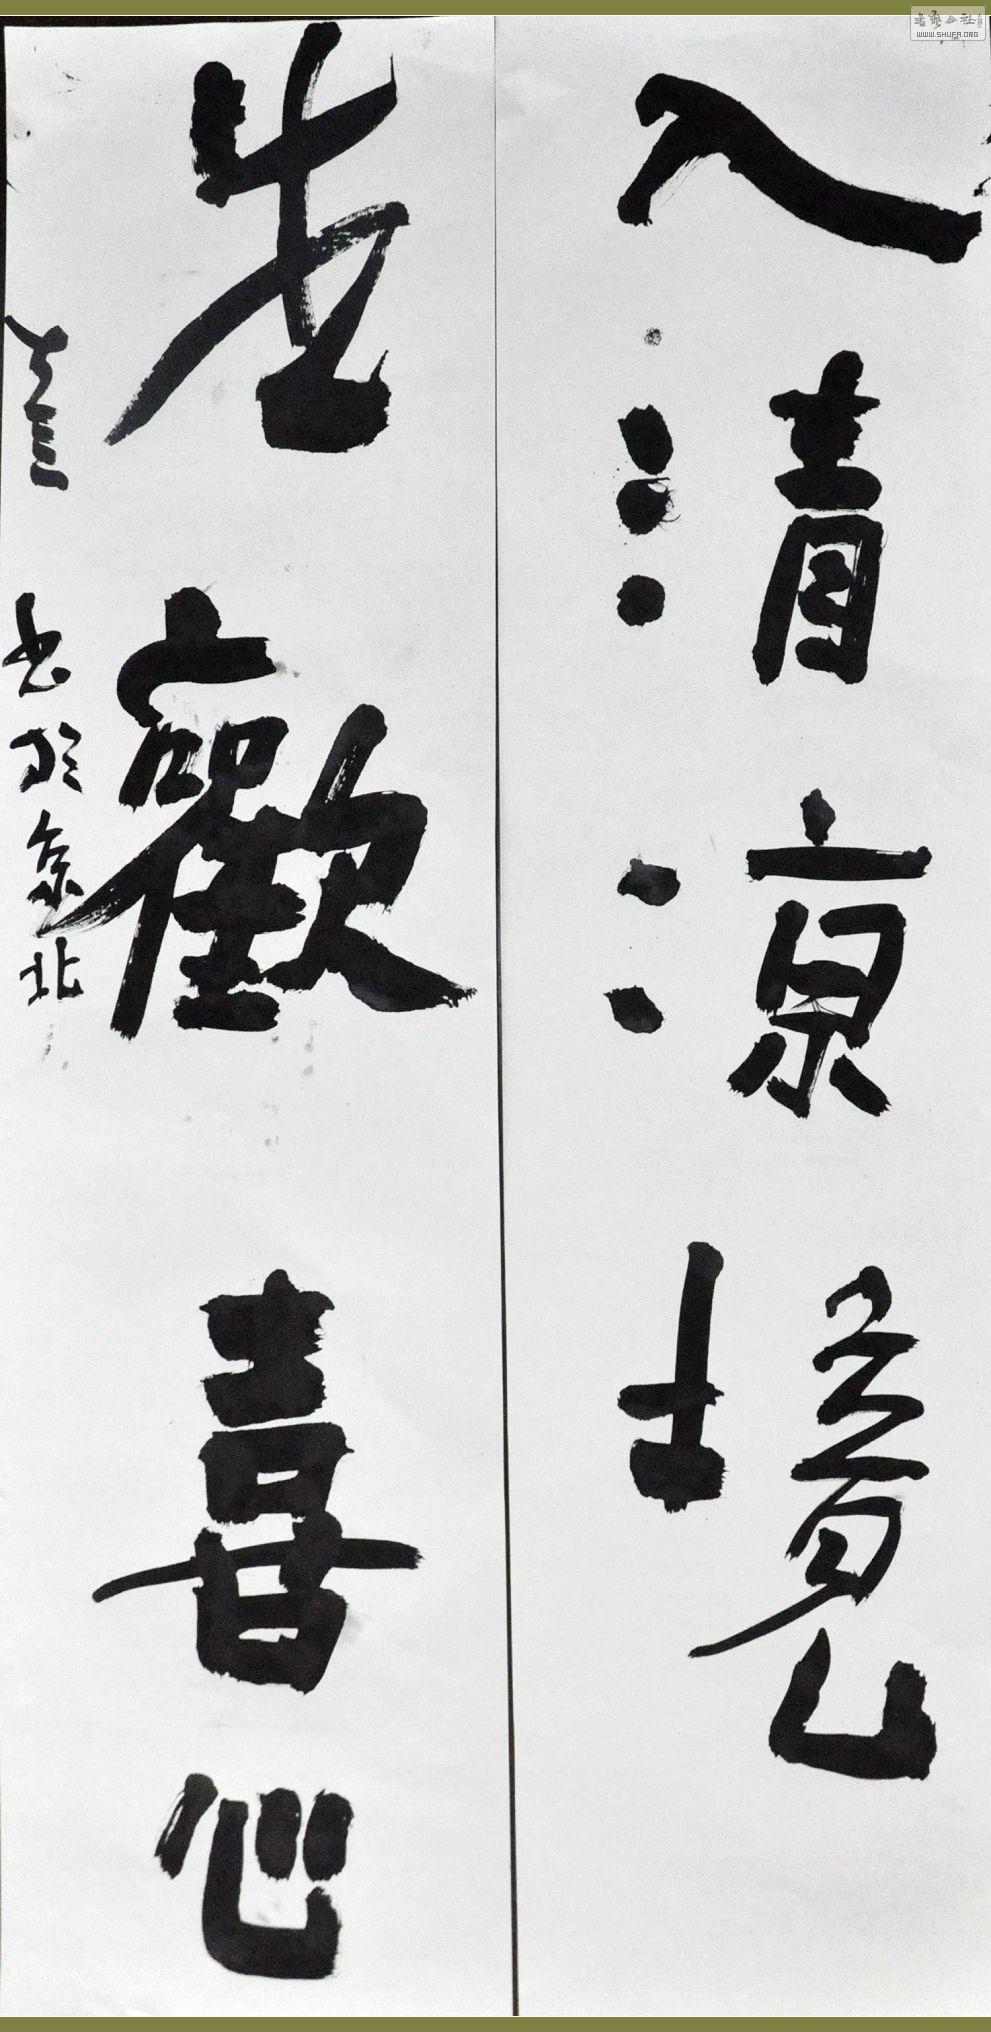 入清涼境
生歡喜心
書於京北
书艺公社
WWW.SHUFA.ORG